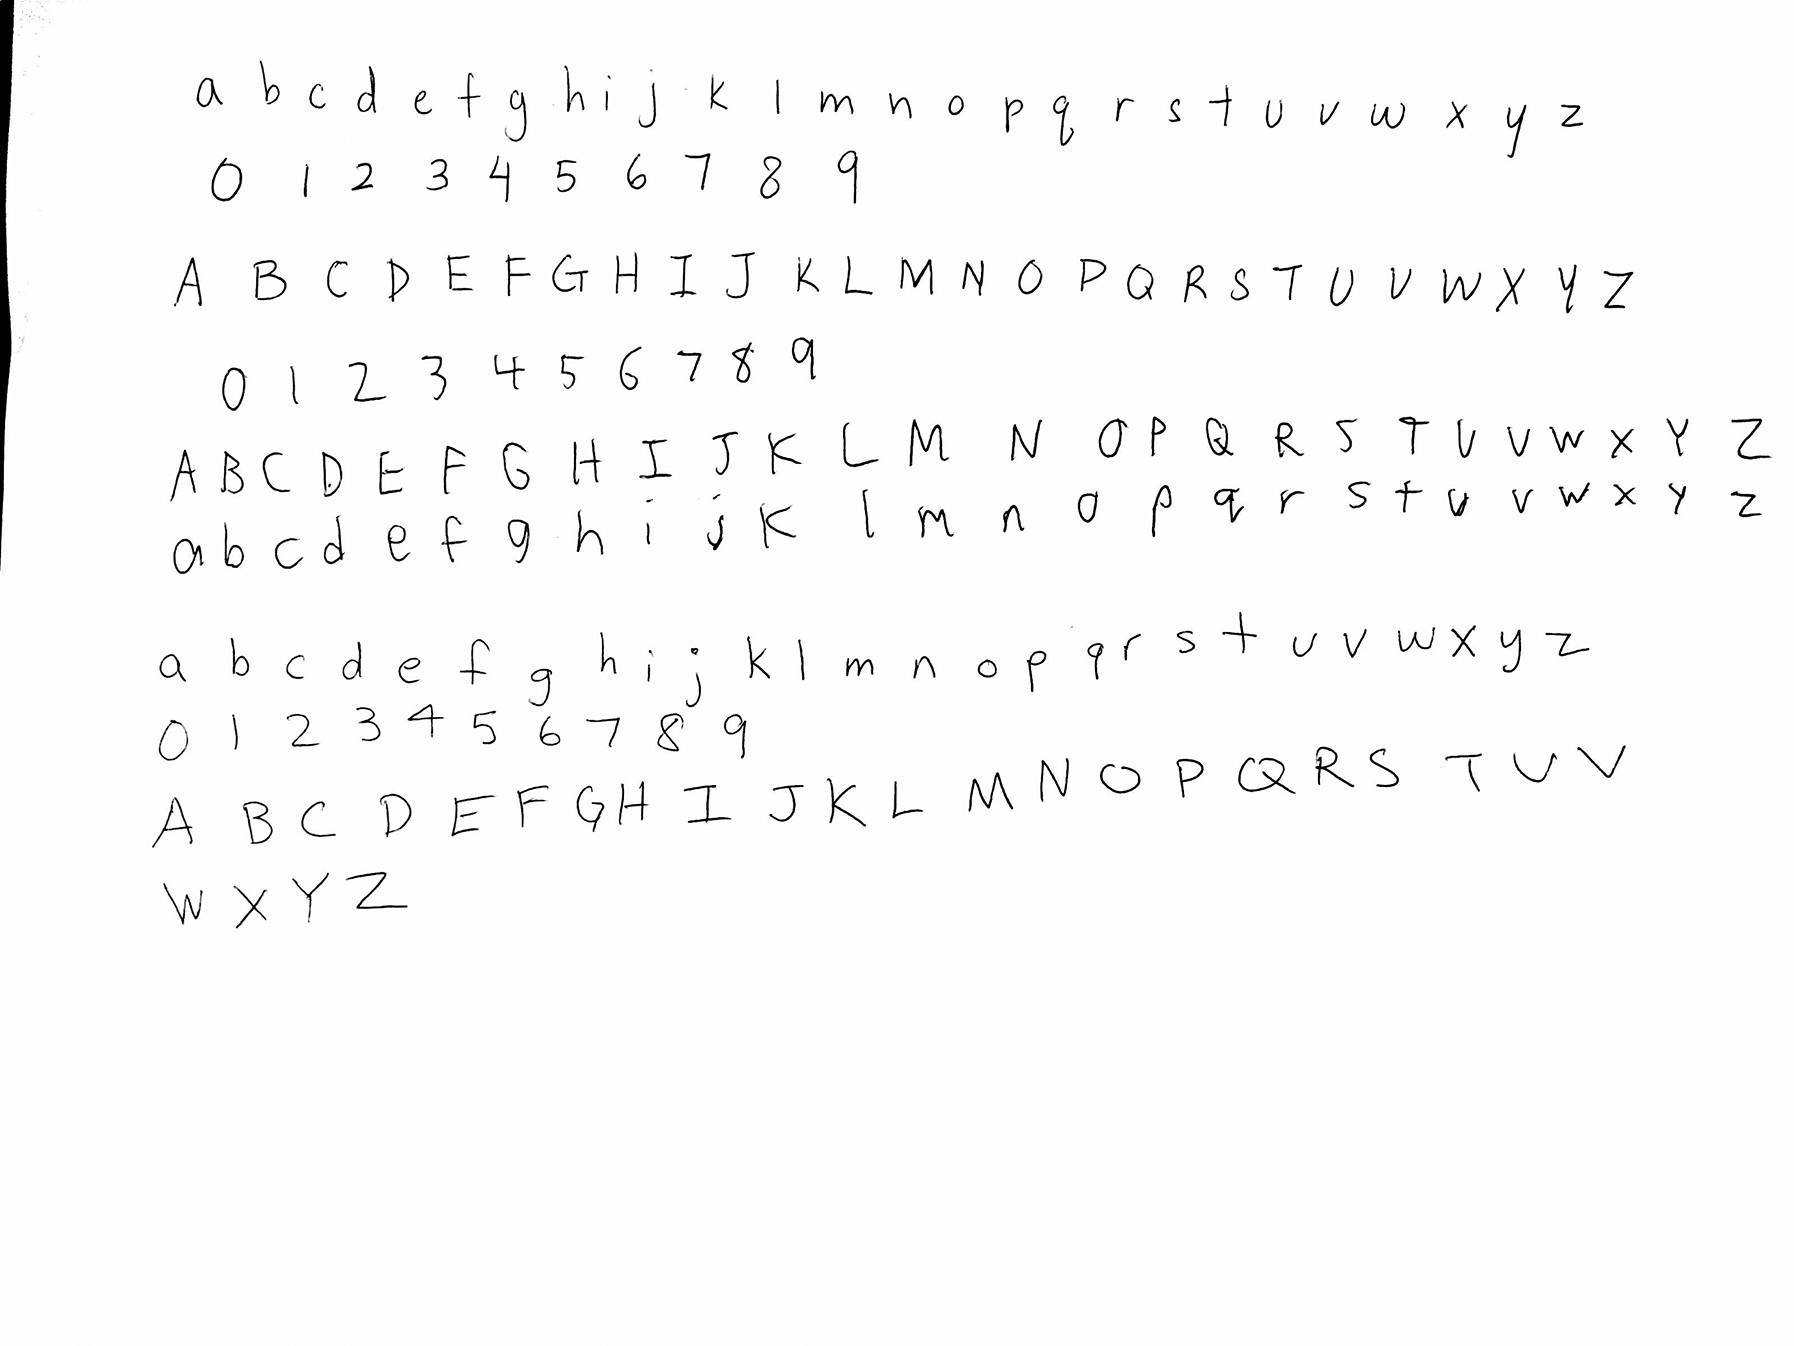 a b c d e f g h i j k l m n o p q r s t u v w x y z
0 1 2 3 4 5 6 7 8 9
A B C D E F G H I J K L M N O P Q R S T U V W X Y Z
0 1 2 3 4 5 6 7 8 9
A B C D E F G H I J K L M N O P Q R S T U V W X Y Z
a b c d e f g h i j k l m n o p q r s t u v w x y z
a b c d e f g h i j k l m n o p q r s t u v w x y z
0 1 2 3 4 5 6 7 8 9
A B C D E F G H I J K L M N O P Q R S T U V
W X Y Z